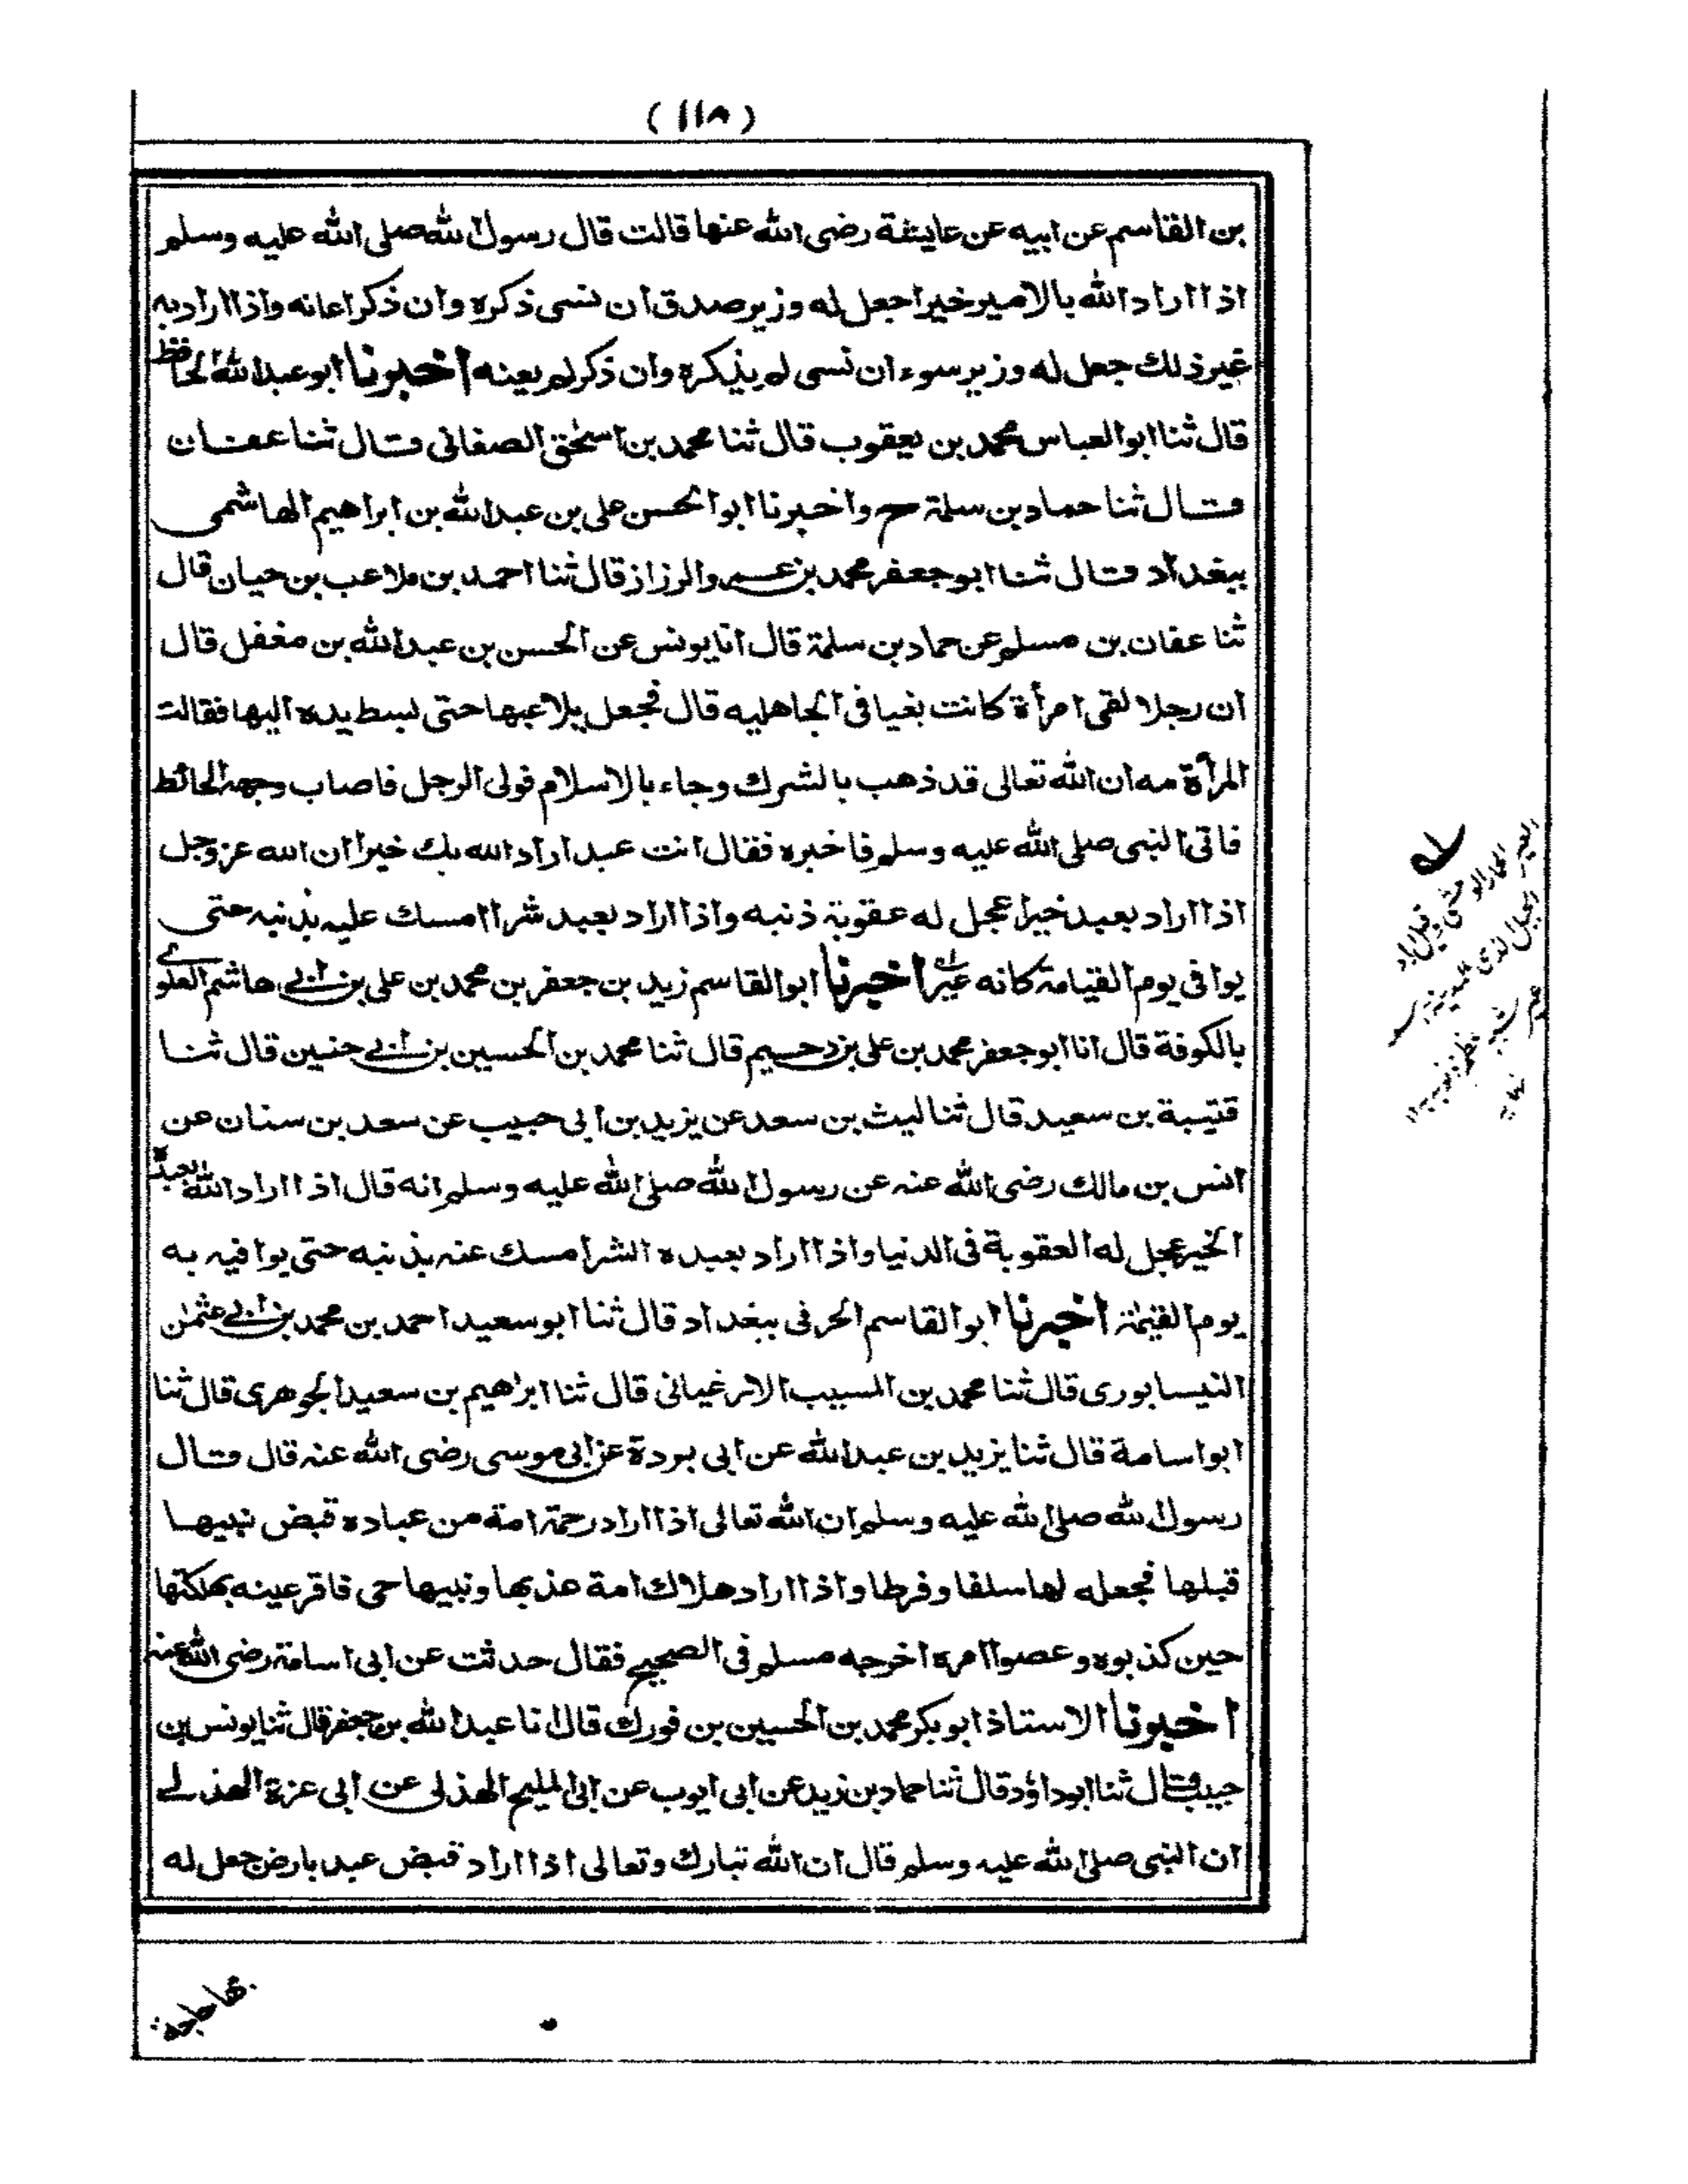 (١١٨)
بن القاسم عن ابيه عن عايشة رضى الله عنها قالت قال رسول الله صلى الله عليه وسلم
اذا اراد الله بالامير خيرا جعل له وزير صدق ان نسى ذكره وان ذكر اعانه واذا اراد به
غير ذلك جعل له وزير سوء ان نسى لم يذكره وان ذكر لم يعنه اخبرنا ابو عبد الله الحافظ
قال ثنا ابو العباس محمد بن يعقوب قال ثنا محمد بن اسحٰق الصغانى قال ثنا عفان
قال ثنا حماد بن سلمة ح واخبرنا ابو الحسن على بن عبد الله بن ابراهيم الهاشمى
ببغداد قال ثنا ابو جعفر محمد بن عمرو الرزاز قال ثنا احمد بن ملاعب بن حيان قال
ثنا عفان بن مسلم عن حماد بن سلمة قال انا يونس عن الحسن بن عبد الله بن مغفل قال
ان رجلا لقى امرأة كانت بغيا فى الجاهليه قال فجعل يلاعبها حتى بسط يده اليها فقالت
المرأة مه ان الله تعالى قد ذهب بالشرك وجاء بالاسلام فولى الرجل فاصاب وجهه الحائط
فاتى النبى صلى الله عليه وسلم فاخبره فقال انت عبد اراد الله بك خيرا ان الله عز وجل
اذا اراد بعبد خيرا عجل له عقوبة ذنبه واذا اراد بعبد شرا امسك عليه بذنبه حتى
يوافى يوم القيامة كانه عير اخبرنا ابو القاسم زيد بن جعفر بن محمد بن على بن ابى هاشم العلوى
بالكوفة قال انا ابو جعفر محمد بن على بن دحيم قال ثنا محمد بن الحسين بن ابى حنين قال ثنا
قتيبة بن سعيد قال ثنا ليث بن سعد عن يزيد بن ابى حبيب عن سعد بن سنان عن
انس بن مالك رضى الله عنه عن رسول الله صلى الله عليه وسلم انه قال اذا اراد الله بعبده
الخير عجل له العقوبة فى الدنيا واذا اراد بعبده الشر امسك عنه بذنبه حتى يوافيه به
يوم القيٰمة اخبرنا ابو القاسم الحرفى ببغداد قال ثنا ابو سعيد احمد بن محمد بن ابى عثمٰن
النيسابورى قال ثنا محمد بن المسيب الارغيانى قال ثنا ابرٰهيم بن سعيد الجوهرى قال ثنا
ابو اسامة قال ثنا يزيد بن عبد الله عن ابى بردة عن ابى موسى رضى الله عنه قال قال
رسول الله صلى الله عليه وسلم ان الله تعالى اذا اراد رحمة امة من عباده قبض نبيها
قبلها فجعله لها سلفا وفرطا واذا اراد هلاك امة عذبها ونبيها حى فاقر عينه بهلكتها
حين كذبوه وعصوا امره اخرجه مسلم فى الصحيح فقال حدثت عن ابى اسامة رضى الله عنه
اخبرنا الاستاذ ابو بكر محمد بن الحسين بن فورك قال انا عبد الله بن جعفر قال ثنا يونس بن
حبيب قال ثنا ابو داؤد قال ثنا حماد بن زيد عن ابى ايوب عن ابى المليح الهذلى عن ابى عزة الهذلى
ان النبى صلى الله عليه وسلم قال ان الله تبارك وتعالى اذا اراد قبض عبد بارض جعل له
له
العير الحمار الوحشى وقيل اراد
بها حاجة